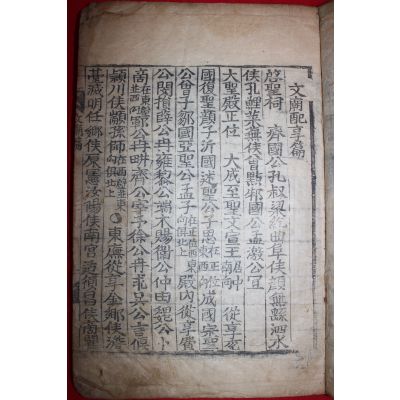 文廟配享篇
啓聖祠 齊國公孔叔梁紇曲阜侯顏無繇泗水
侯孔鯉萊蕪侯曾點邾國公孟激公宜
大聖殿正位 大成至聖文宣王居中南向 從享兗
國復聖顏子沂國述聖公子思在正位東西向成國宗聖
公曾子鄒國亞聖公孟子在正位西東向俱北上殿內從享費
公閔損薛公冉雍黎公端木賜衛公仲由魏公卜
商在東壁西向北上鄆公冉耕齊公宰予徐公冉求吳公言偃
潁川侯顓孫師在西壁東向俱北上○東廡從享金鄉侯澹
臺滅明任鄉侯原憲汝陽侯南宮适須昌侯商瞿